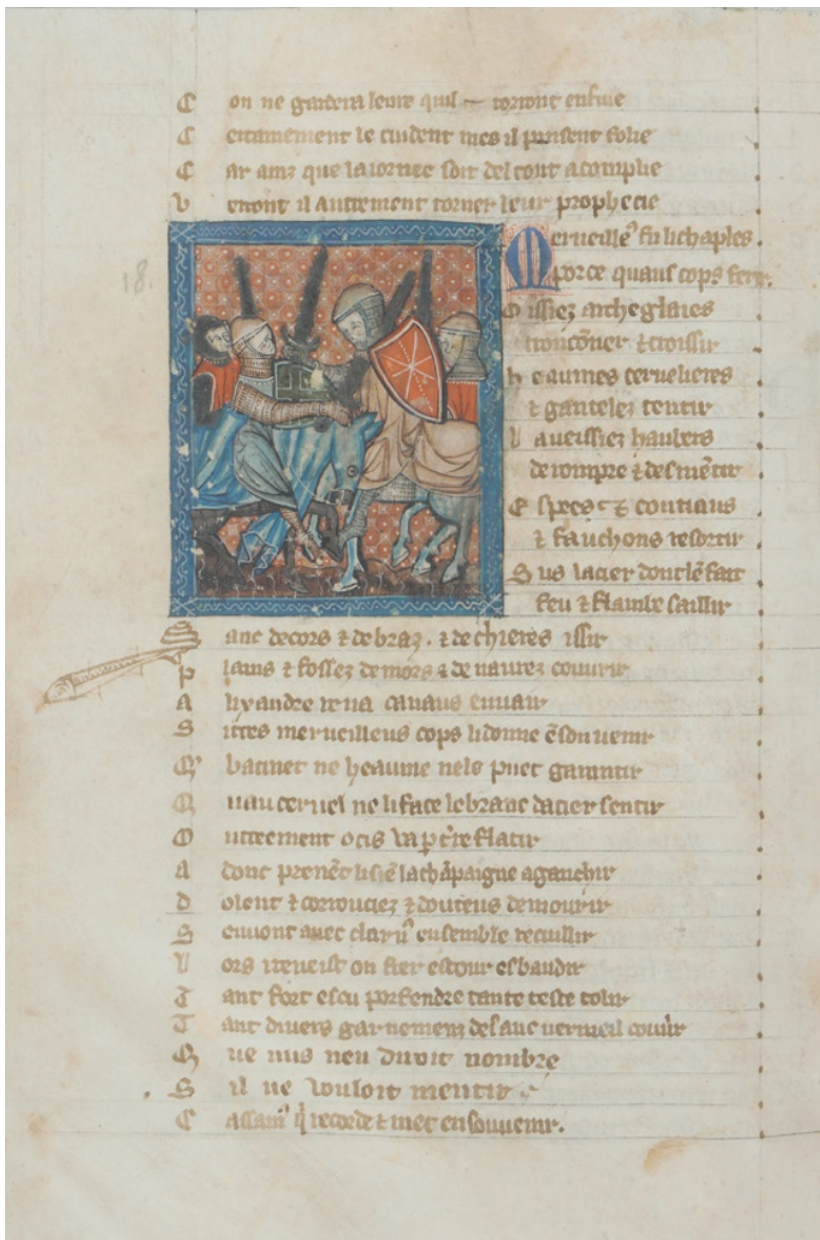 C on ne gardera leure quil — torront en fuie
C ertainement le cuident mes il pensent folie
C ar ainz que la iornee soit del tout acomplie
V erront il autrement torner leur prophecie
Merueille fu li chaples
porce quaus cops ferir
O issiez archeglaies
tronconer & croissir
H eaumes ceruelieres
& gantelez tentir
L aueissiez haubers
derompre & desmentir
E spees & coutiaus
& fauchons resortir
S us lacier dont len fait
feu & flambe saillir
18.
S anc de cors & de braz . & de chieres issir
P lains & fossez de mors & de naurez couurir
A lixandre reua canaus enuair
S i tres merueilleus cops li donne en son uenir
Q bacinet ne heaume nels puet garantir
Q uau ceruel ne li face le branc dacier sentir
O utreement ocis ua par terre flatir
A donc prenent li sien la champaigne a guenchir
D olent & corrouciez & douteus de mourir
S en uont auec clarus ensemble recuillir
L ors i reueist on fier estour esbaudir
T ant fort escu porfendre tante teste tolir
T ant diuers garnemenz de sanc uermeil couurir
Q ue nus nen diroit nombre
S il ne uouloit mentir
C assamus qui recorde & met en souuenir.